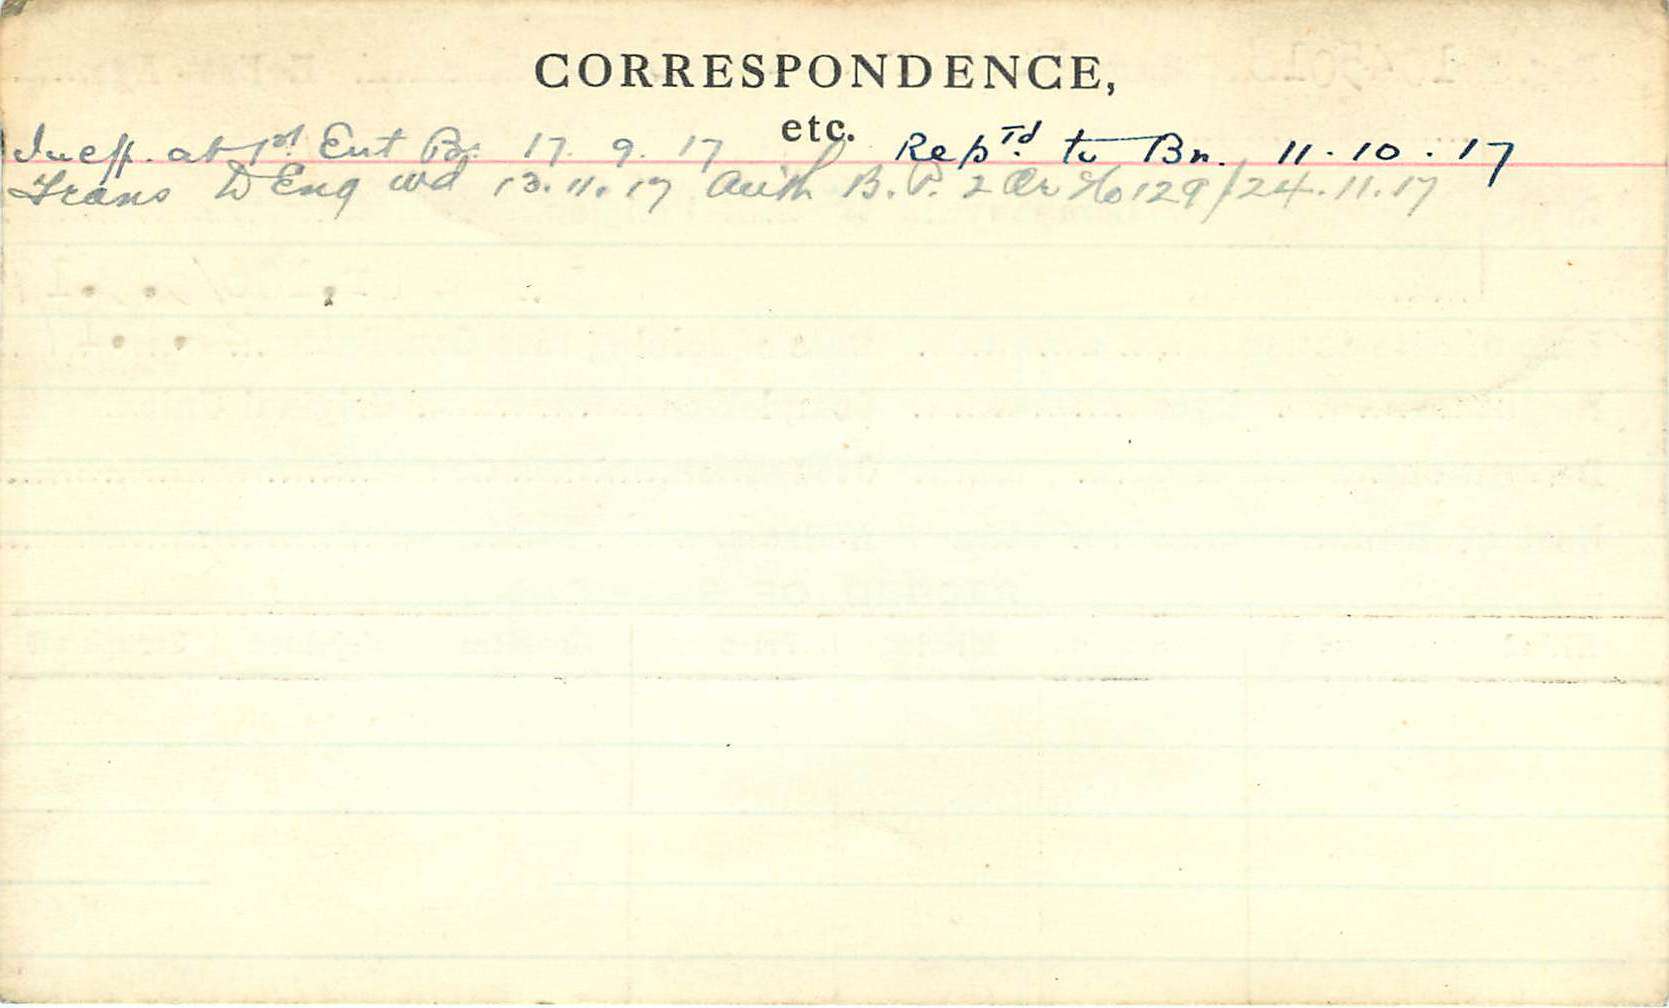 CORRESPONDENCE,
etc.
Ineff. at 1st Ent Bn 17. 9. 17 Rep.Td to Bn. 11.10.17
Trans to Eng wd 13.11.17 Auth B. P. 2 Or No 129/24.11.17